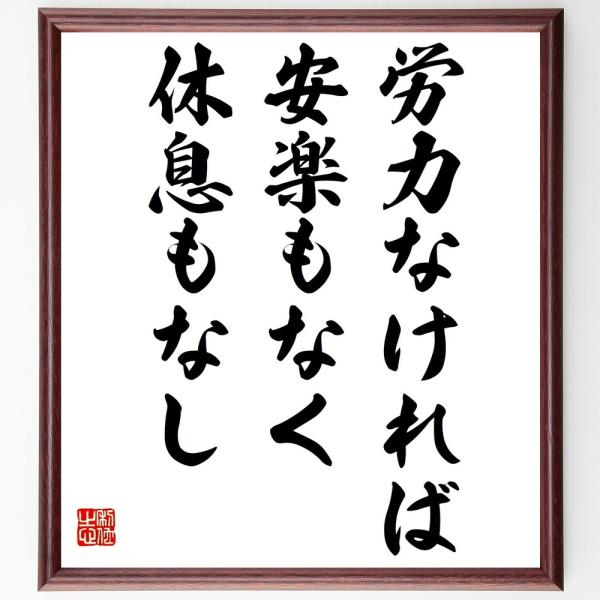 労力なければ
安楽もなく
休息もなし